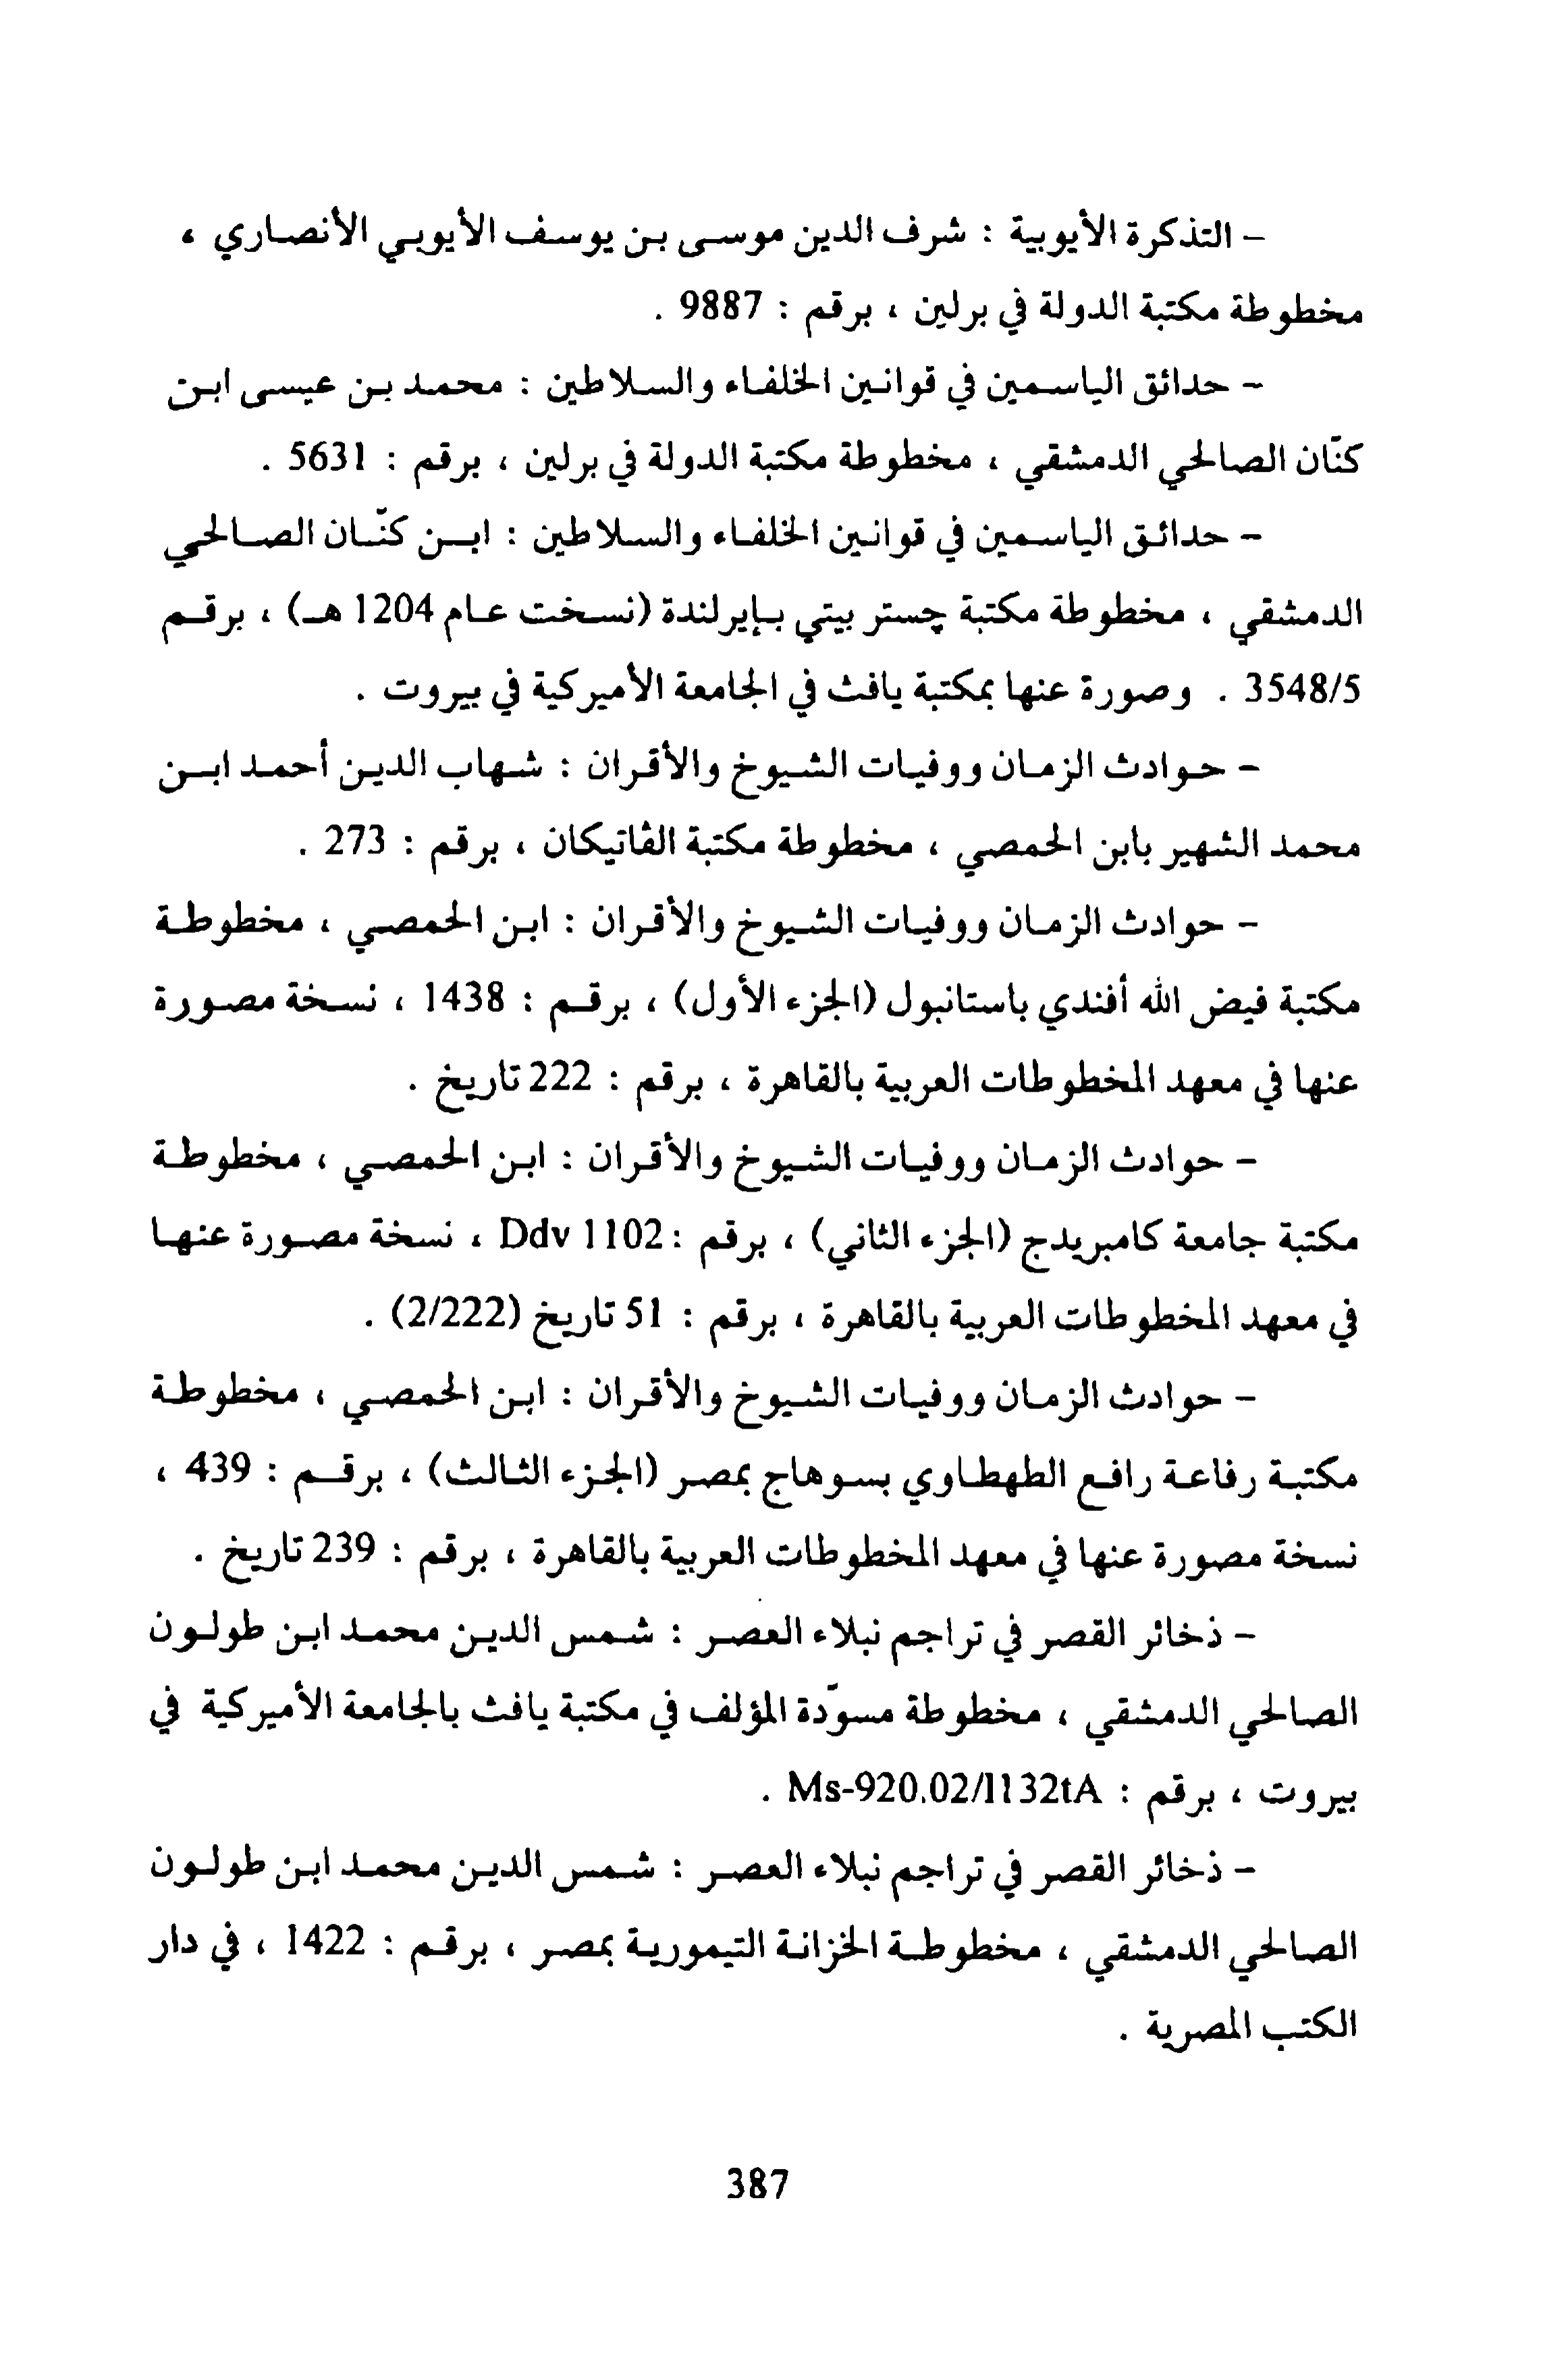 – التذكرة الأيوبية : شرف الدين موسى بن يوسف الأيوبي الأنصاري ،
مخطوطة مكتبة الدولة في برلين ، برقم : 9887 .
– حدائق الياسمين في قوانين الخلفاء والسلاطين : محمد بن عيسى ابن
كنّان الصالحي الدمشقي ، مخطوطة مكتبة الدولة في برلين ، برقم : 5631 .
– حدائق الياسمين في قوانين الخلفاء والسلاطين : ابن كنّان الصالحي
الدمشقي ، مخطوطة مكتبة چستر بيتي بإيرلندة (نسخت عام 1204 هـ) ، برقم
3548/5 . وصورة عنها بمكتبة يافث في الجامعة الأميركية في بيروت .
– حوادث الزمان ووفيات الشيوخ والأقران : شهاب الدين أحمد ابن
محمد الشهير بابن الحمصي ، مخطوطة مكتبة الڤاتيكان ، برقم : 273 .
– حوادث الزمان ووفيات الشيوخ والأقران : ابن الحمصي ، مخطوطة
مكتبة فيض الله أفندي باستانبول (الجزء الأول) ، برقم : 1438 ، نسخة مصورة
عنها في معهد المخطوطات العربية بالقاهرة ، برقم : 222 تاريخ .
– حوادث الزمان ووفيات الشيوخ والأقران : ابن الحمصي ، مخطوطة
مكتبة جامعة كامبريدج (الجزء الثاني) ، برقم : Ddv 1102 ، نسخة مصورة عنها
في معهد المخطوطات العربية بالقاهرة ، برقم : 51 تاريخ (2/222) .
– حوادث الزمان ووفيات الشيوخ والأقران : ابن الحمصي ، مخطوطة
مكتبة رفاعة رافع الطهطاوي بسوهاج بمصر (الجزء الثالث) ، برقم : 439 ،
نسخة مصورة عنها في معهد المخطوطات العربية بالقاهرة ، برقم : 239 تاريخ .
– ذخائر القصر في تراجم نبلاء العصر : شمس الدين محمد ابن طولون
الصالحي الدمشقي ، مخطوطة مسوّدة المؤلف في مكتبة يافث بالجامعة الأميركية في
بيروت ، برقم : Ms-920.02/I132tA .
– ذخائر القصر في تراجم نبلاء العصر : شمس الدين محمد ابن طولون
الصالحي الدمشقي ، مخطوطة الخزانة التيمورية بمصر ، برقم : 1422 ، في دار
الكتب المصرية .
387